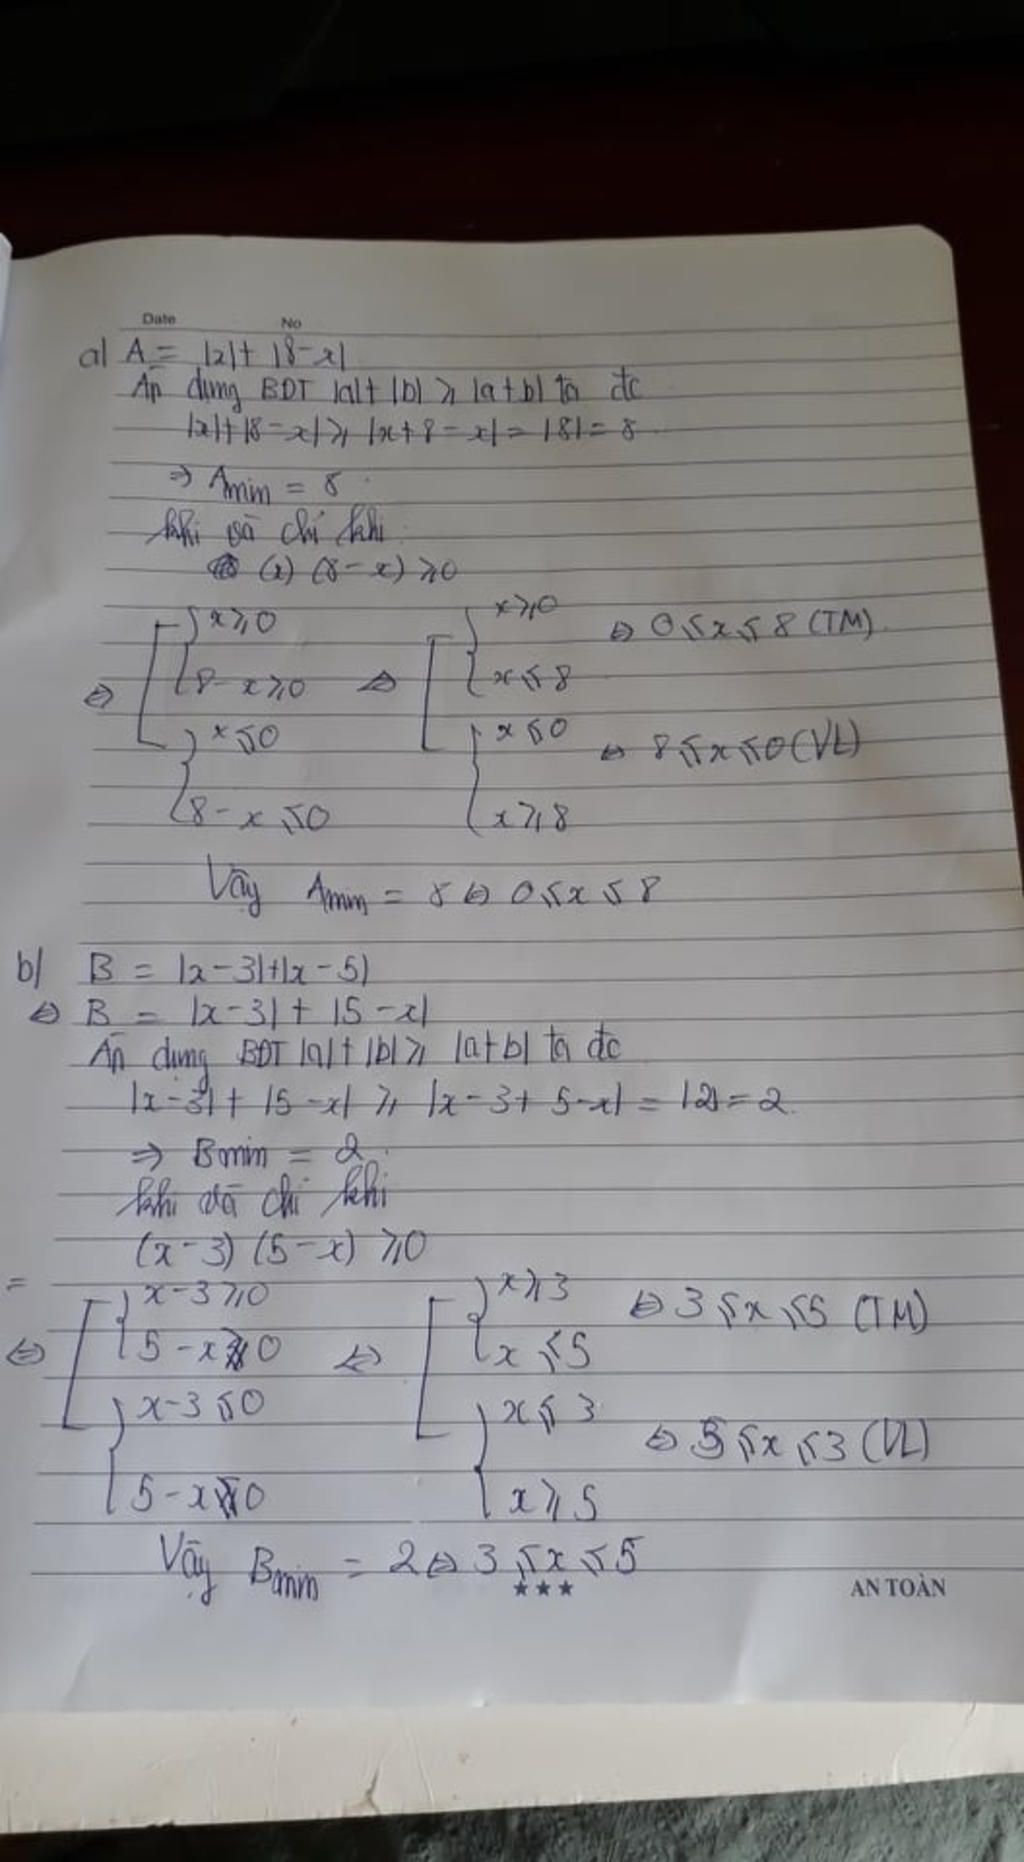 Date No
a) A = |x| + |8 - x|
Áp dụng BĐT |a| + |b| ≥ |a + b| ta đc
|x| + |8 - x| ≥ |x + 8 - x| = |8| = 8
⇒ Amin = 8
khi và chỉ khi
(x) (8 - x) ≥ 0
⇔ [ { x ≥ 0 ; 8 - x ≥ 0 ⇔ [ { x ≥ 0 ; x ≤ 8 ⇔ 0 ≤ x ≤ 8 (TM)
{ x ≤ 0 ; 8 - x ≤ 0 { x ≤ 0 ; x ≥ 8 ⇔ 8 ≤ x ≤ 0 (VL)
Vậy Amin = 8 ⇔ 0 ≤ x ≤ 8
b) B = |x - 3| + |x - 5|
⇔ B = |x - 3| + |5 - x|
Áp dụng BĐT |a| + |b| ≥ |a + b| ta đc
|x - 3| + |5 - x| ≥ |x - 3 + 5 - x| = |2| = 2
⇒ Bmin = 2
khi và chỉ khi
(x - 3) (5 - x) ≥ 0
=
⇔ [ { x - 3 ≥ 0 ; 5 - x ≥ 0 ⇔ [ { x ≥ 3 ; x ≤ 5 ⇔ 3 ≤ x ≤ 5 (TM)
{ x - 3 ≤ 0 ; 5 - x ≤ 0 { x ≤ 3 ; x ≥ 5 ⇔ 5 ≤ x ≤ 3 (VL)
Vậy Bmin = 2 ⇔ 3 ≤ x ≤ 5
★★★ AN TOÀN